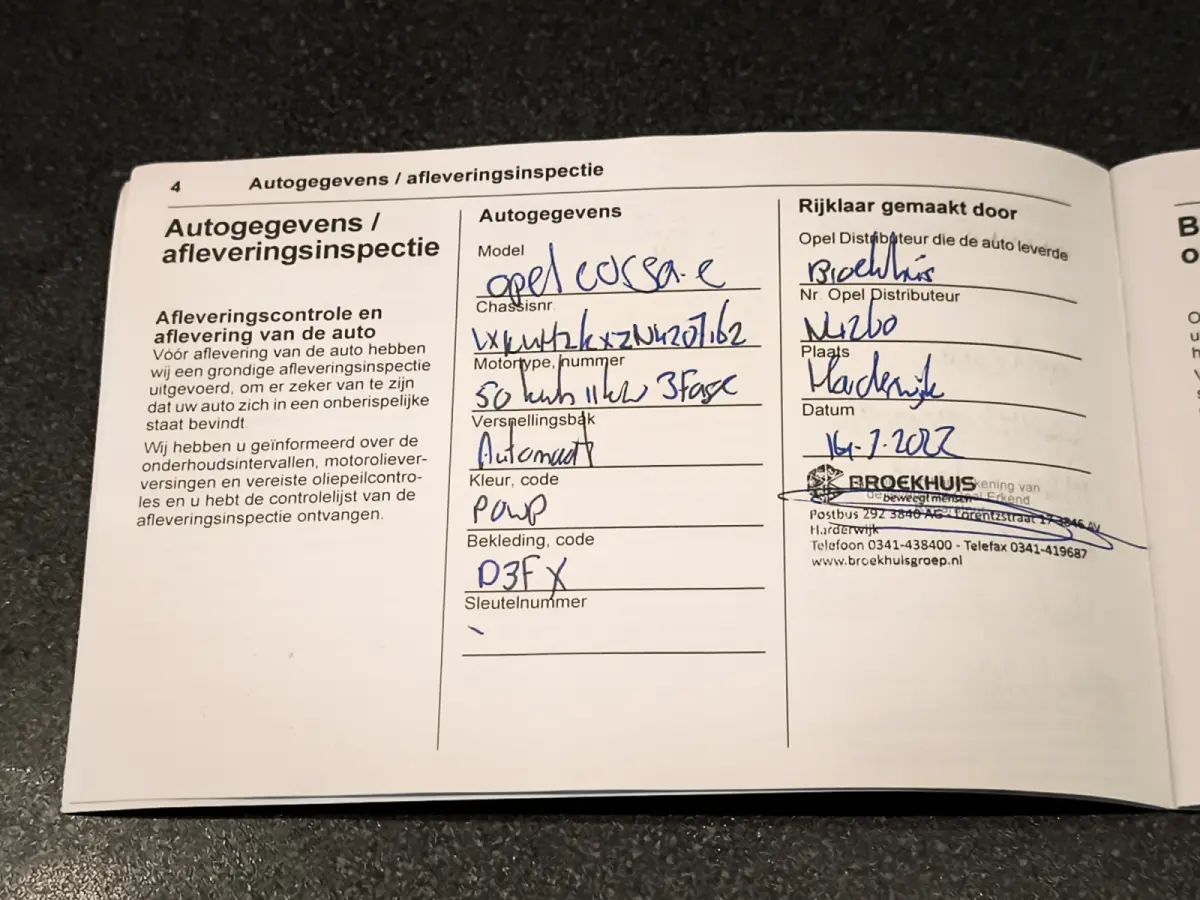 4
Autogegevens / afleveringsinspectie
Autogegevens /
afleveringsinspectie
Afleveringscontrole en
aflevering van de auto
Vóór aflevering van de auto hebben
wij een grondige afleveringsinspectie
uitgevoerd, om er zeker van te zijn
dat uw auto zich in een onberispelijke
staat bevindt.
Wij hebben u geïnformeerd over de
onderhoudsintervallen, motoroliever-
versingen en vereiste oliepeilcontro-
les en u hebt de controlelijst van de
afleveringsinspectie ontvangen.
Autogegevens
Model
opel corsa-e
Chassisnr.
Motortype, nummer
50 kwh 11kw 3fase
Versnellingsbak
Automaat
Kleur, code
P0WP
Bekleding, code
D3FX
Sleutelnummer
Rijklaar gemaakt door
Opel Distributeur die de auto leverde
Broekhuis
Nr. Opel Distributeur
Plaats
Harderwijk
Datum
14-7-2022
BROEKHUIS
ening van
beweegt mensen
Erkend
Postbus 292 3840 AG - Lorentzstraat 17 3846 AV
Harderwijk
Telefoon 0341-438400 - Telefax 0341-419687
www.broekhuisgroep.nl
B
o
O
u
h